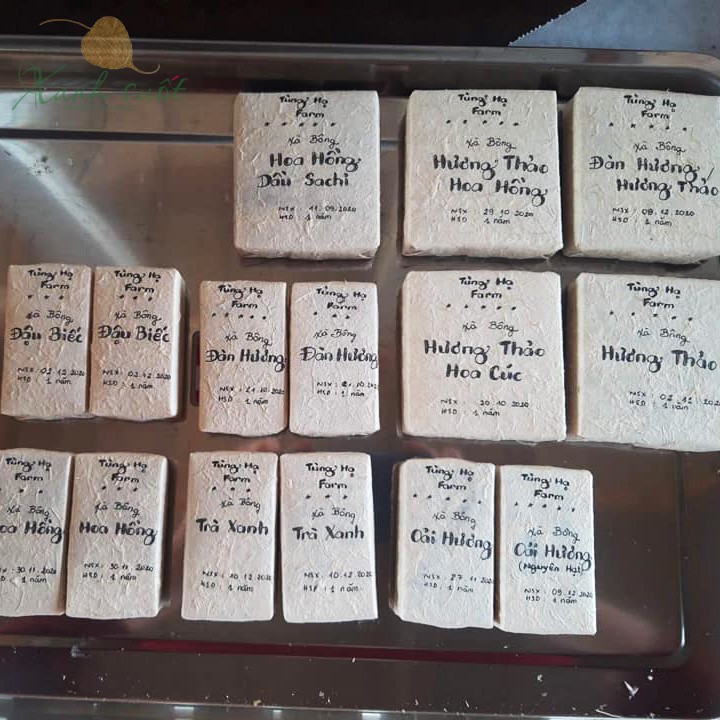 Xanh Suốt
Tùng Hạ
Farm
Xà Bông
Hoa Hồng
Dầu Sachi
NSX : 11.09.2020
HSD : 1 năm
Tùng Hạ
Farm
Xà Bông
Hương Thảo
Hoa Hồng
NSX : 29.10.2020
HSD : 1 năm
Tùng Hạ
Farm
Xà Bông
Đàn Hương,
Hương Thảo
NSX : 08.12.2020
HSD : 1 năm
Tùng Hạ
Farm
Xà Bông
Đậu Biếc
NSX : 02.12.2020
HSD : 1 năm
Tùng Hạ
Farm
Xà Bông
Đậu Biếc
NSX : 02.12.2020
HSD : 1 năm
Tùng Hạ
Farm
Xà Bông
Đàn Hương
NSX : 21.10.2020
HSD : 1 năm
Tùng Hạ
Farm
Xà Bông
Đàn Hương
NSX : 21.10.202
HSD : 1 năm
Tùng Hạ
Farm
Xà Bông
Hương Thảo
Hoa Cúc
NSX : 20.10.2020
HSD : 1 năm
Tùng Hạ
Farm
Xà Bông
Hương Thảo
NSX : 02.12.2020
HSD : 1 năm
Tùng Hạ
Farm
Xà Bông
Hoa Hồng
: 30.11.2020
: 1 năm
Tùng Hạ
Farm
Xà Bông
Hoa Hồng
NSX : 30.11.2020
HSD : 1 năm
Tùng Hạ
Farm
Xà Bông
Trà Xanh
NSX : 10.12.2020
HSD : 1 năm
Tùng Hạ
Farm
Xà Bông
Trà Xanh
NSX : 10.12.2020
HSD : 1 năm
Tùng Hạ
Farm
Xà Bông
Oải Hương
NSX : 27.11.2020
HSD : 1 năm
Tùng Hạ
Farm
Xà Bông
Oải Hương
(Nguyên Hạt)
NSX : 09.12.2020
HSD : 1 năm